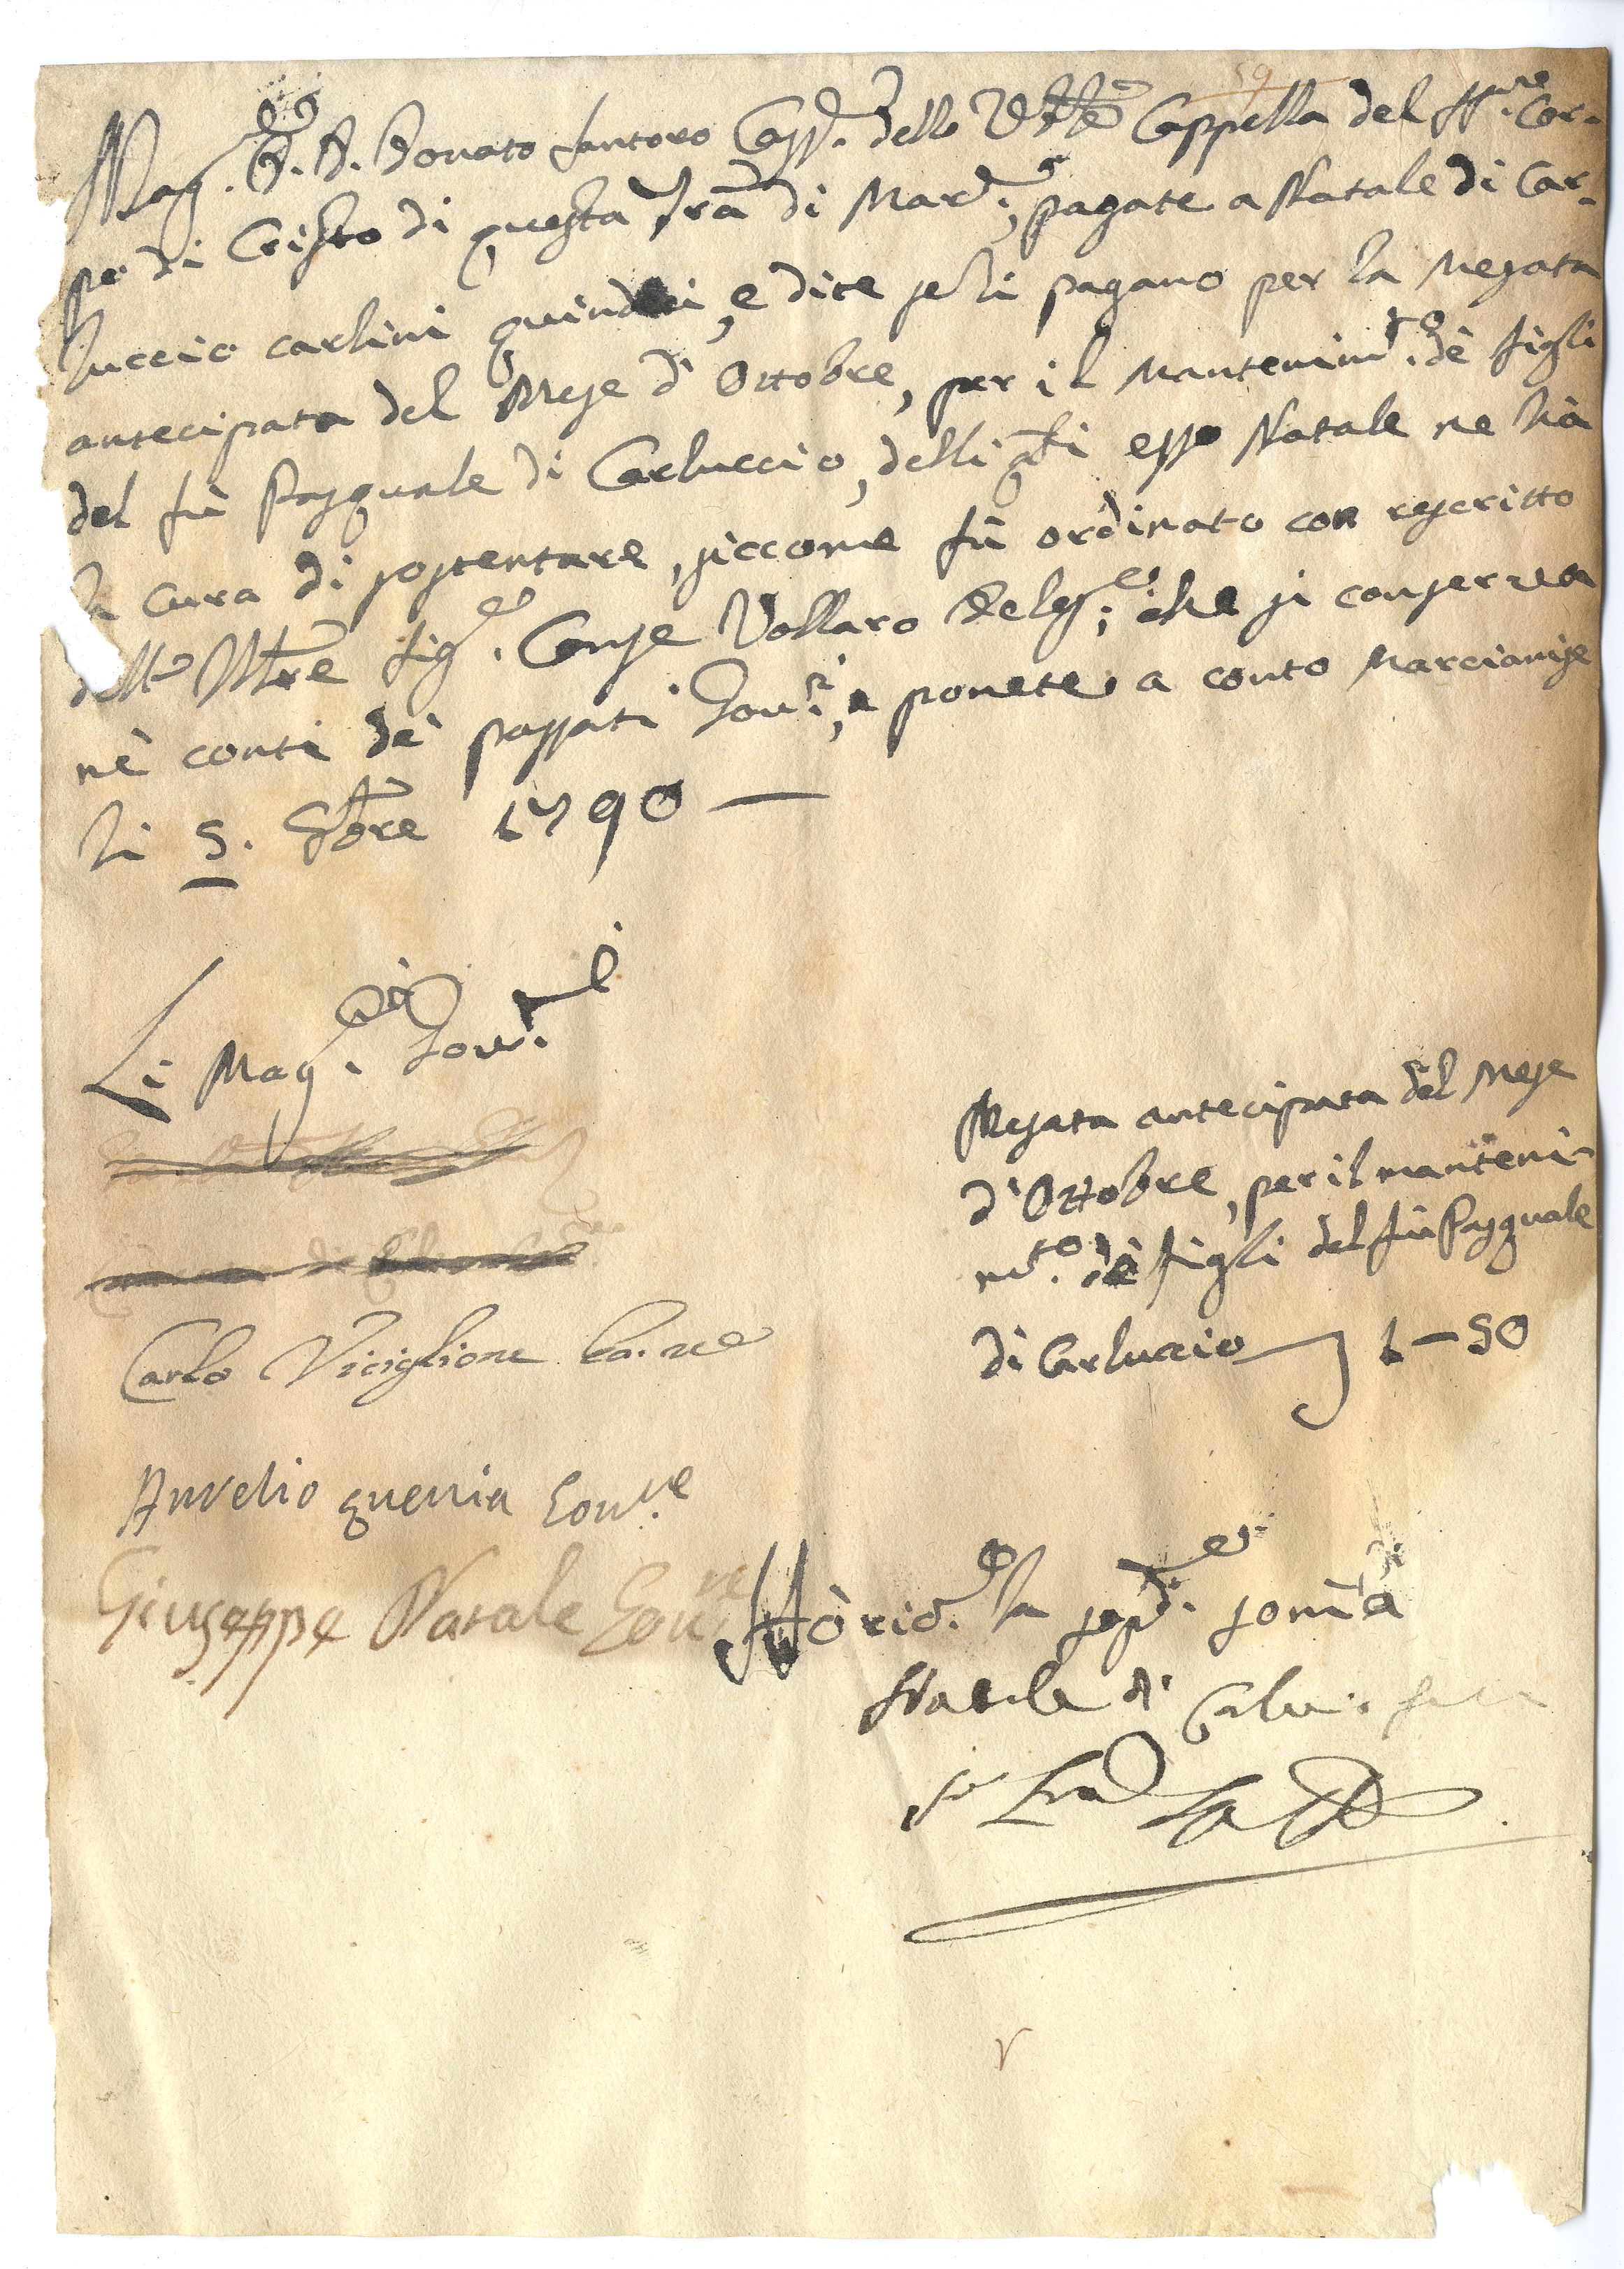 59
Mag.co D. D. Donato Santoro Cass. dello Ven.le Cappella del SS.mo Cor-
po di Cristo di questa Tra di Mar.e, pagate a Natale di Car-
luccio carlini quindeci, e dite se li pagano per la Mesata
antecipata del Mese d' Ottobre, per il mantenim.to de figli
del fù Pasquale di Carluccio, delli qli esso Natale ne hà
la cura di sostentare, siccome fù ordinato con rescritto
dell' Ill.re Sig.e Conse Vollaro Deleg.e; che si conserva
nè conti de' passati Gov.ri, e ponete a conto Marcianise
li 5. 8bre 1790 —
Li Mag.ci Gov.ri
Carlo Viciglione Go.re
Aurelio guerria Gov.re
Giuseppe Natale Gov.re
Mesata antecipata del Mese
d' Ottobre, per il manteni-
m.to de figli del fù Pasquale
di Carluccio 1 – 50
Hò ric.o la sop.a somã
Natale di